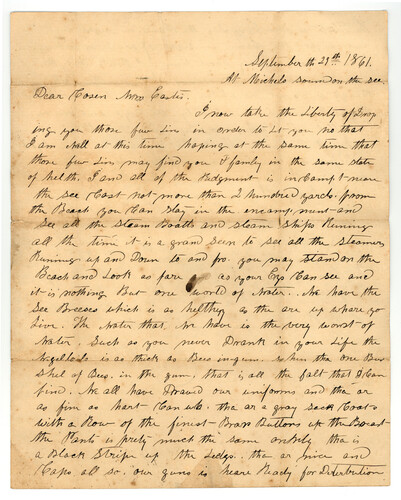 September th 29th 1861.
At Michels sound on the see.
Dear Cosen Mrs Easter.
I now take the Liberty of Drop
ing you those few Lins in order to Let you no that
I am Well at this time hoping at the same time that
those few Lins may find you & family in the same state
of helth. I and all of the Redgment is in Camp near
the See Coast not more than 2 hundred yards from
the Beach you Can stay in the encampment and
See all the Steam Boatts and steam Ships Runing
all the time it is a grand seen to see all the steamers
Runing up and Down to and fro. you may stand on the
Beach and Look as fare as your Eys Can see and
it is nothing But one world of Water. We have the
See Breeses which is as helthey as the are up where yo
Live. The Water that We have is the very worst of
Water. Such as you never Drank in your Life the
is as thick as Bees in gum. When tha one Bu-
shel of Bees. in the gum. that is all the falt that I Can
find. We all have Drawd our uniforms and tha ar
as fin as hart Can wish. tha ar a gray sack Coat
with a Row of the finest Brass Buttons up the Breast
the Pants is prety much the same only tha is
a Black Stripe up the Ledgs. tha ar nice and
Caps all so. our guns is heare Ready for Deterbution